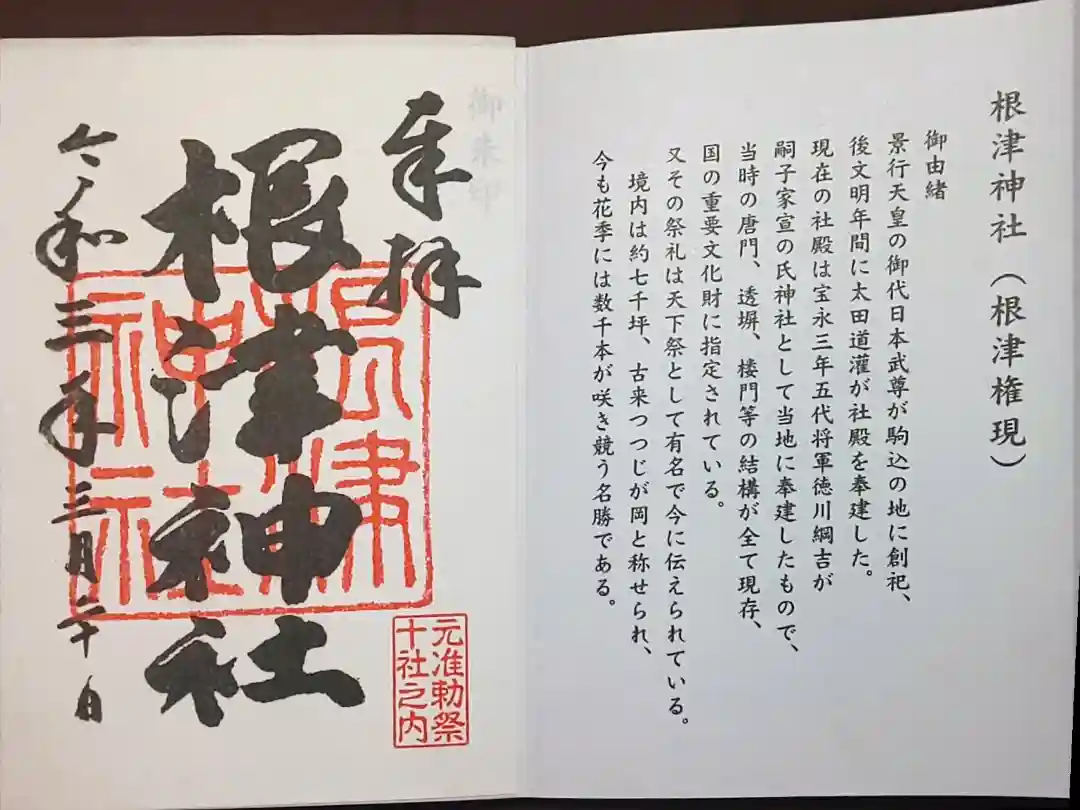 根津神社（根津権現）
御由緒
景行天皇の御代日本武尊が駒込の地に創祀、
後文明年間に太田道灌が社殿を奉建した。
現在の社殿は宝永三年五代将軍徳川綱吉が
嗣子家宣の氏神社として当地に奉建したもので、
当時の唐門、透塀、楼門等の結構が全て現存、
国の重要文化財に指定されている。
又その祭礼は天下祭として有名で今に伝えられている。
境内は約七千坪、古来つつじが岡と称せられ、
今も花季には数千本が咲き競う名勝である。
御朱印
奉拝
根津神社
根津
神社
元准勅祭
十社之内
令和三年三月二十日